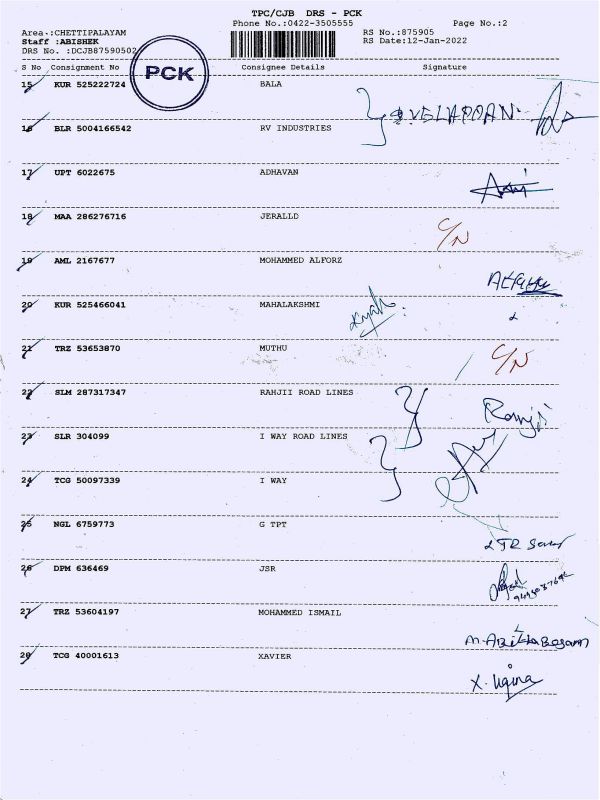 TPC/CJB DRS - PCK
Phone No.:0422-3505555
Page No.:2
Area :CHETTIPALAYAM
Staff :ABISHEK
DRS No. :DCJB87590502
RS No.:875905
RS Date:12-Jan-2022
PCK
S No Consignment No Consignee Details Signature
15 KUR 525222724 BALA
16 BLR 5004166542 RV INDUSTRIES
17 UPT 6022675 ADHAVAN
18 MAA 286276716 JERALLD C/N
19 AML 2167677 MOHAMMED ALFORZ
20 KUR 525466041 MAHALAKSHMI
21 TRZ 53653870 MUTHU C/N
22 SLM 287317347 RAHJII ROAD LINES Ramji
23 SLR 304099 I WAY ROAD LINES
24 TCG 50097339 I WAY
25 NGL 6759773 G TPT
26 DPM 636469 JSR
27 TRZ 53604197 MOHAMMED ISMAIL
28 TCG 40001613 XAVIER